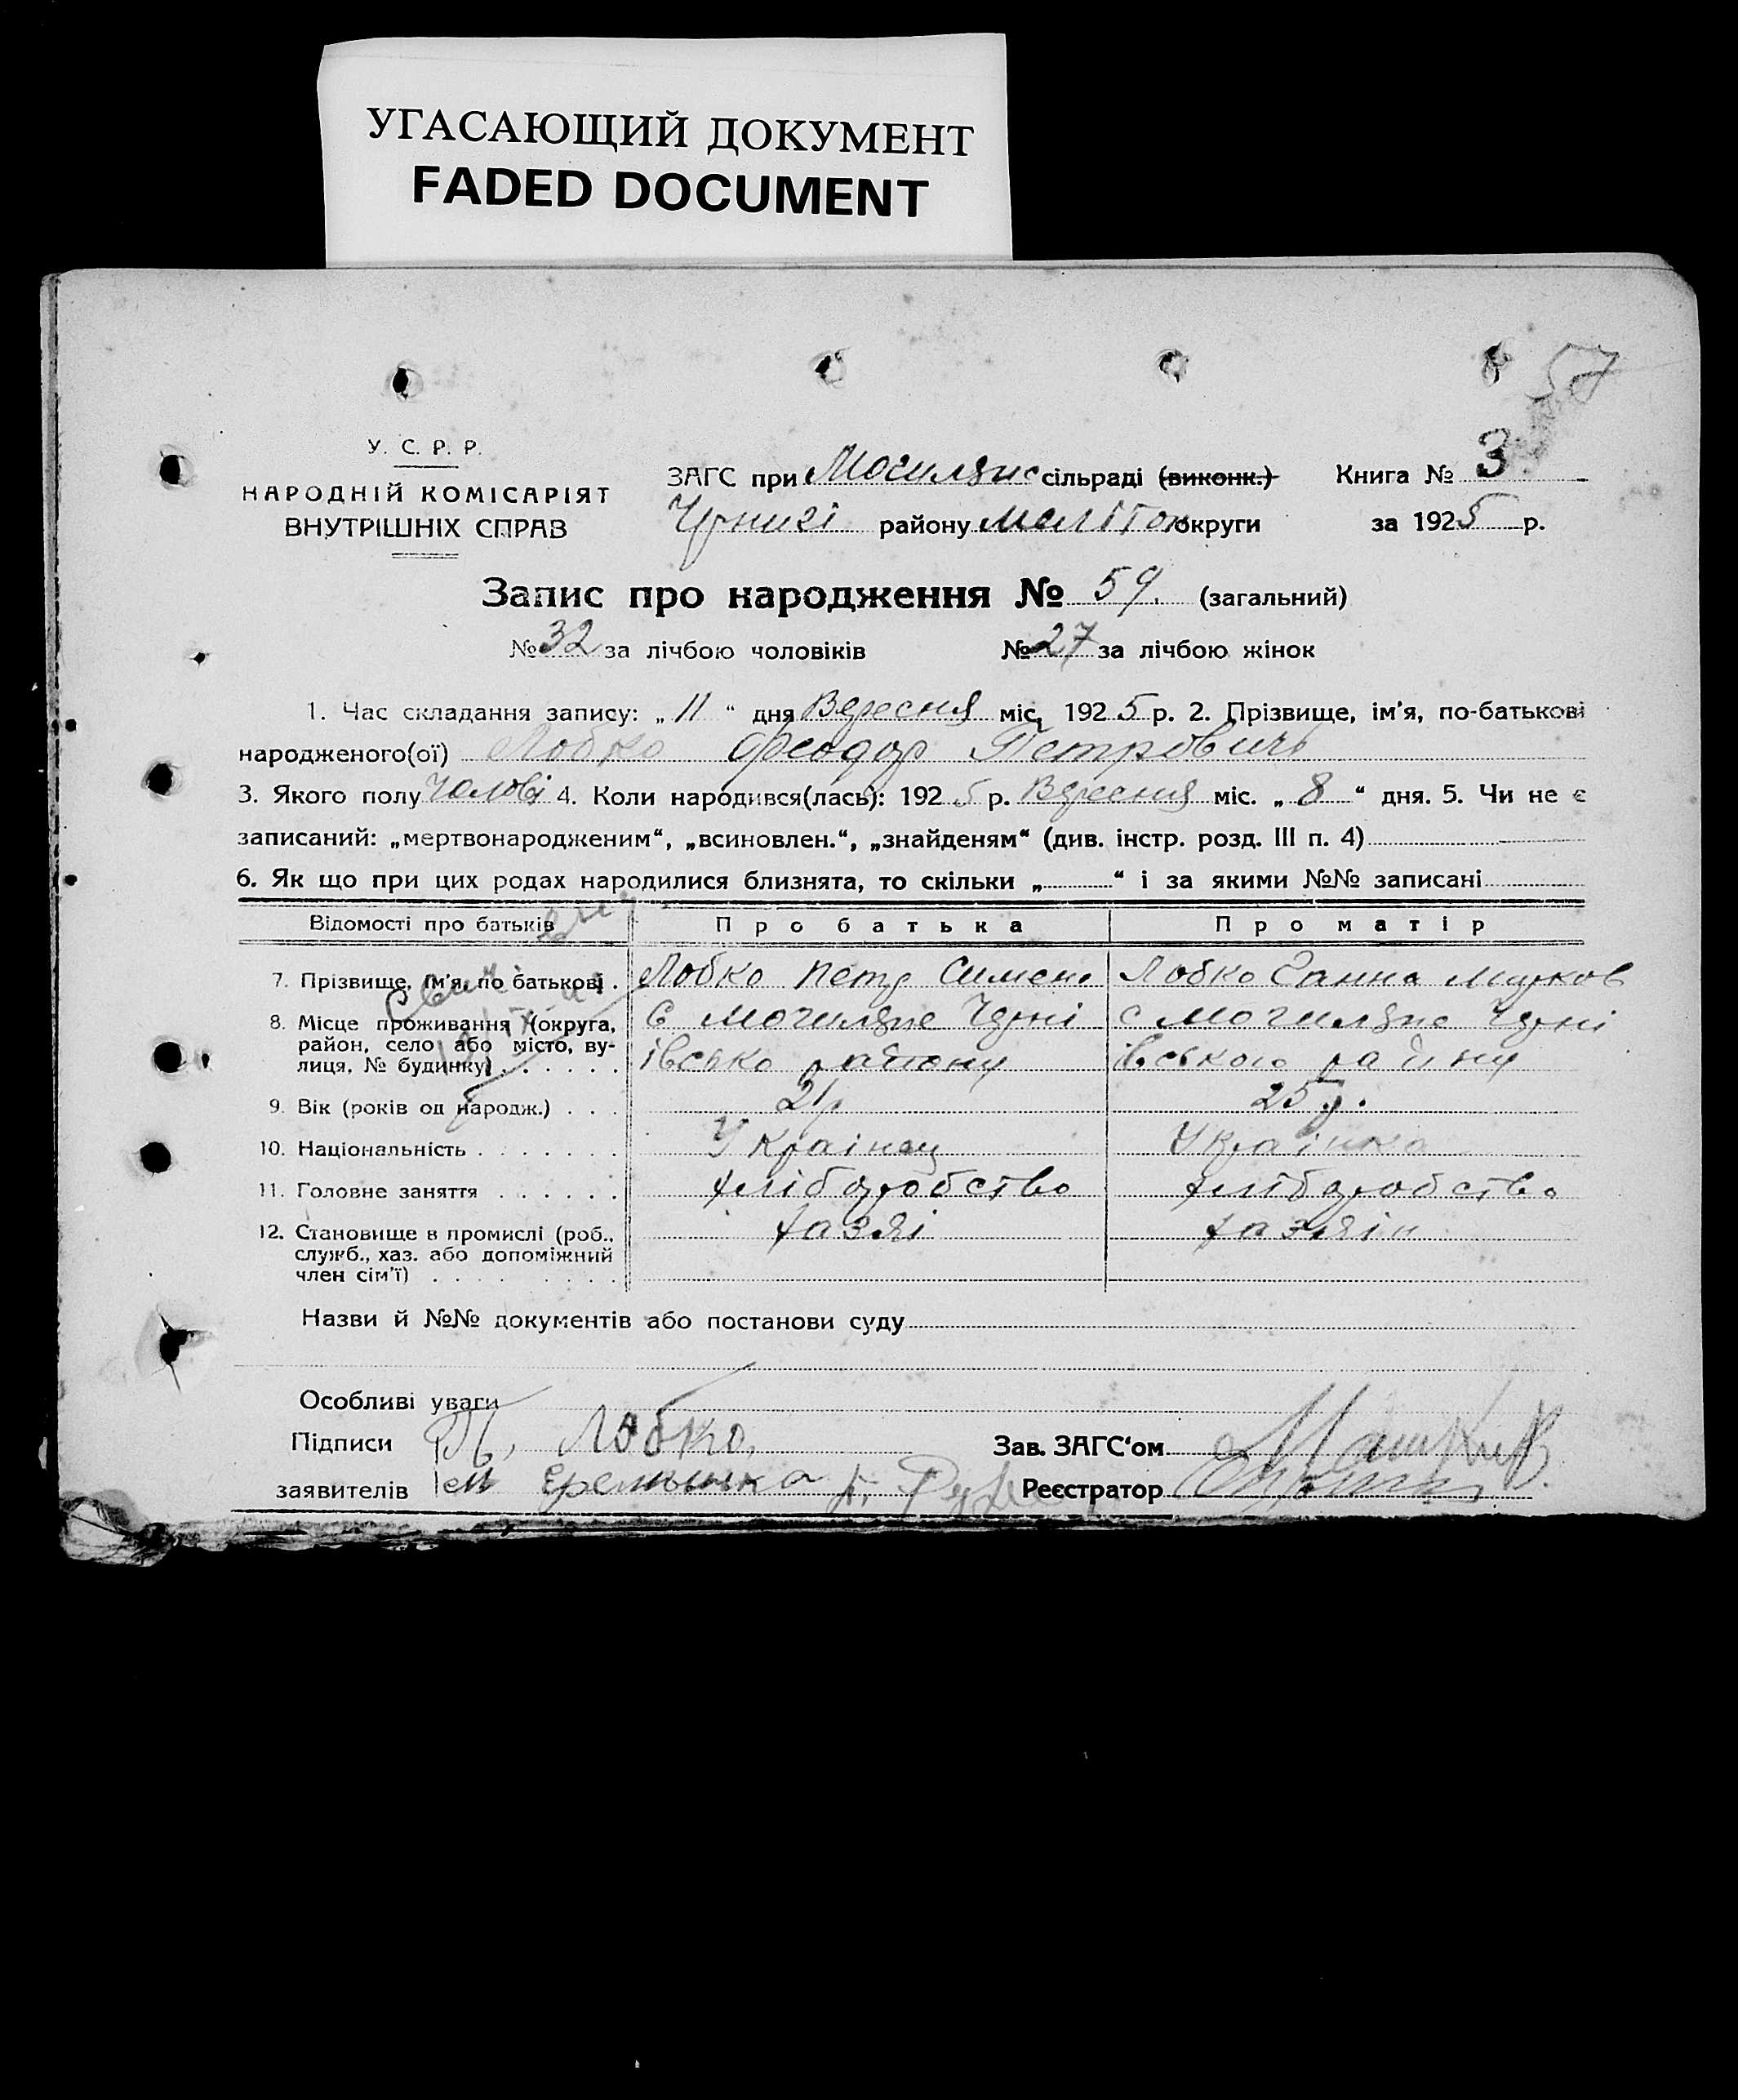 УГАСАЮЩИЙ ДОКУМЕНТ
FADED DOCUMENT
57
У. С. Р. Р.
НАРОДНІЙ КОМІСАРІЯТ
ВНУТРІШНІХ СПРАВ
ЗАГС при сільраді (виконк.) Книга № 3
району округи за 1925 р.
Запис про народження № 59. (загальний)
№ 32 за лічбою чоловіків № 27 за лічбою жінок
1. Час складання запису: „ 11 “ дня Вересня міс. 1925 р. 2. Прізвище, ім’я, по-батькові
народженого(ої) Лобко Феодор Петрович
3. Якого полу Чолові 4. Коли народився(лась): 1925 р. Вересня міс. „ 8 “ дня. 5. Чи не є
записаний: „мертвонародженим“, „всиновлен.“, „знайденям“ (див. інстр. розд. III п. 4)
6. Як що при цих родах народилися близнята, то скільки „ “ і за якими №№ записані
Відомості про батьків Про батька Про матір
7. Прізвище, ім’я, по батькові . Лобко Петр Симено Лобко Ганна Марков
8. Місце проживання (округа, район, село або місто, вулиця, № будинку) с с
івсько району івського району
9. Вік (років од народж.) . . . 21р 25р.
10. Національність . . . . . . . Українец Українка
11. Головне заняття . . . . . . хліборобство хліборобство
12. Становище в промислі (роб., хазяі хазяін
служб., хаз. або допоміжний
член сім’ї) . . . . . . . . .
Назви й №№ документів або постанови суду
Особливі уваги
Підписи Лобко Зав. ЗАГС‘ом
заявителів Реєстратор